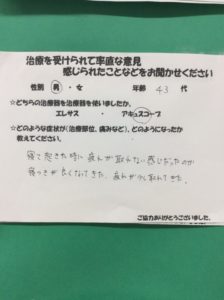 治療を受けられて率直な意見
感じられたことなどをお聞かせください
性別 男・女 年齢 43 代
☆どちらの治療器を治療器を使いましたか。
エレサス ・ アキュスコープ
☆どのような症状が(治療部位、痛みなど)、どのようになったか
教えてください。
寝て起きた時に疲れが取れない感じだったのが
寝つきが良くなってきた。疲れが少し取れてきた。
ご協力ありがとうございました。